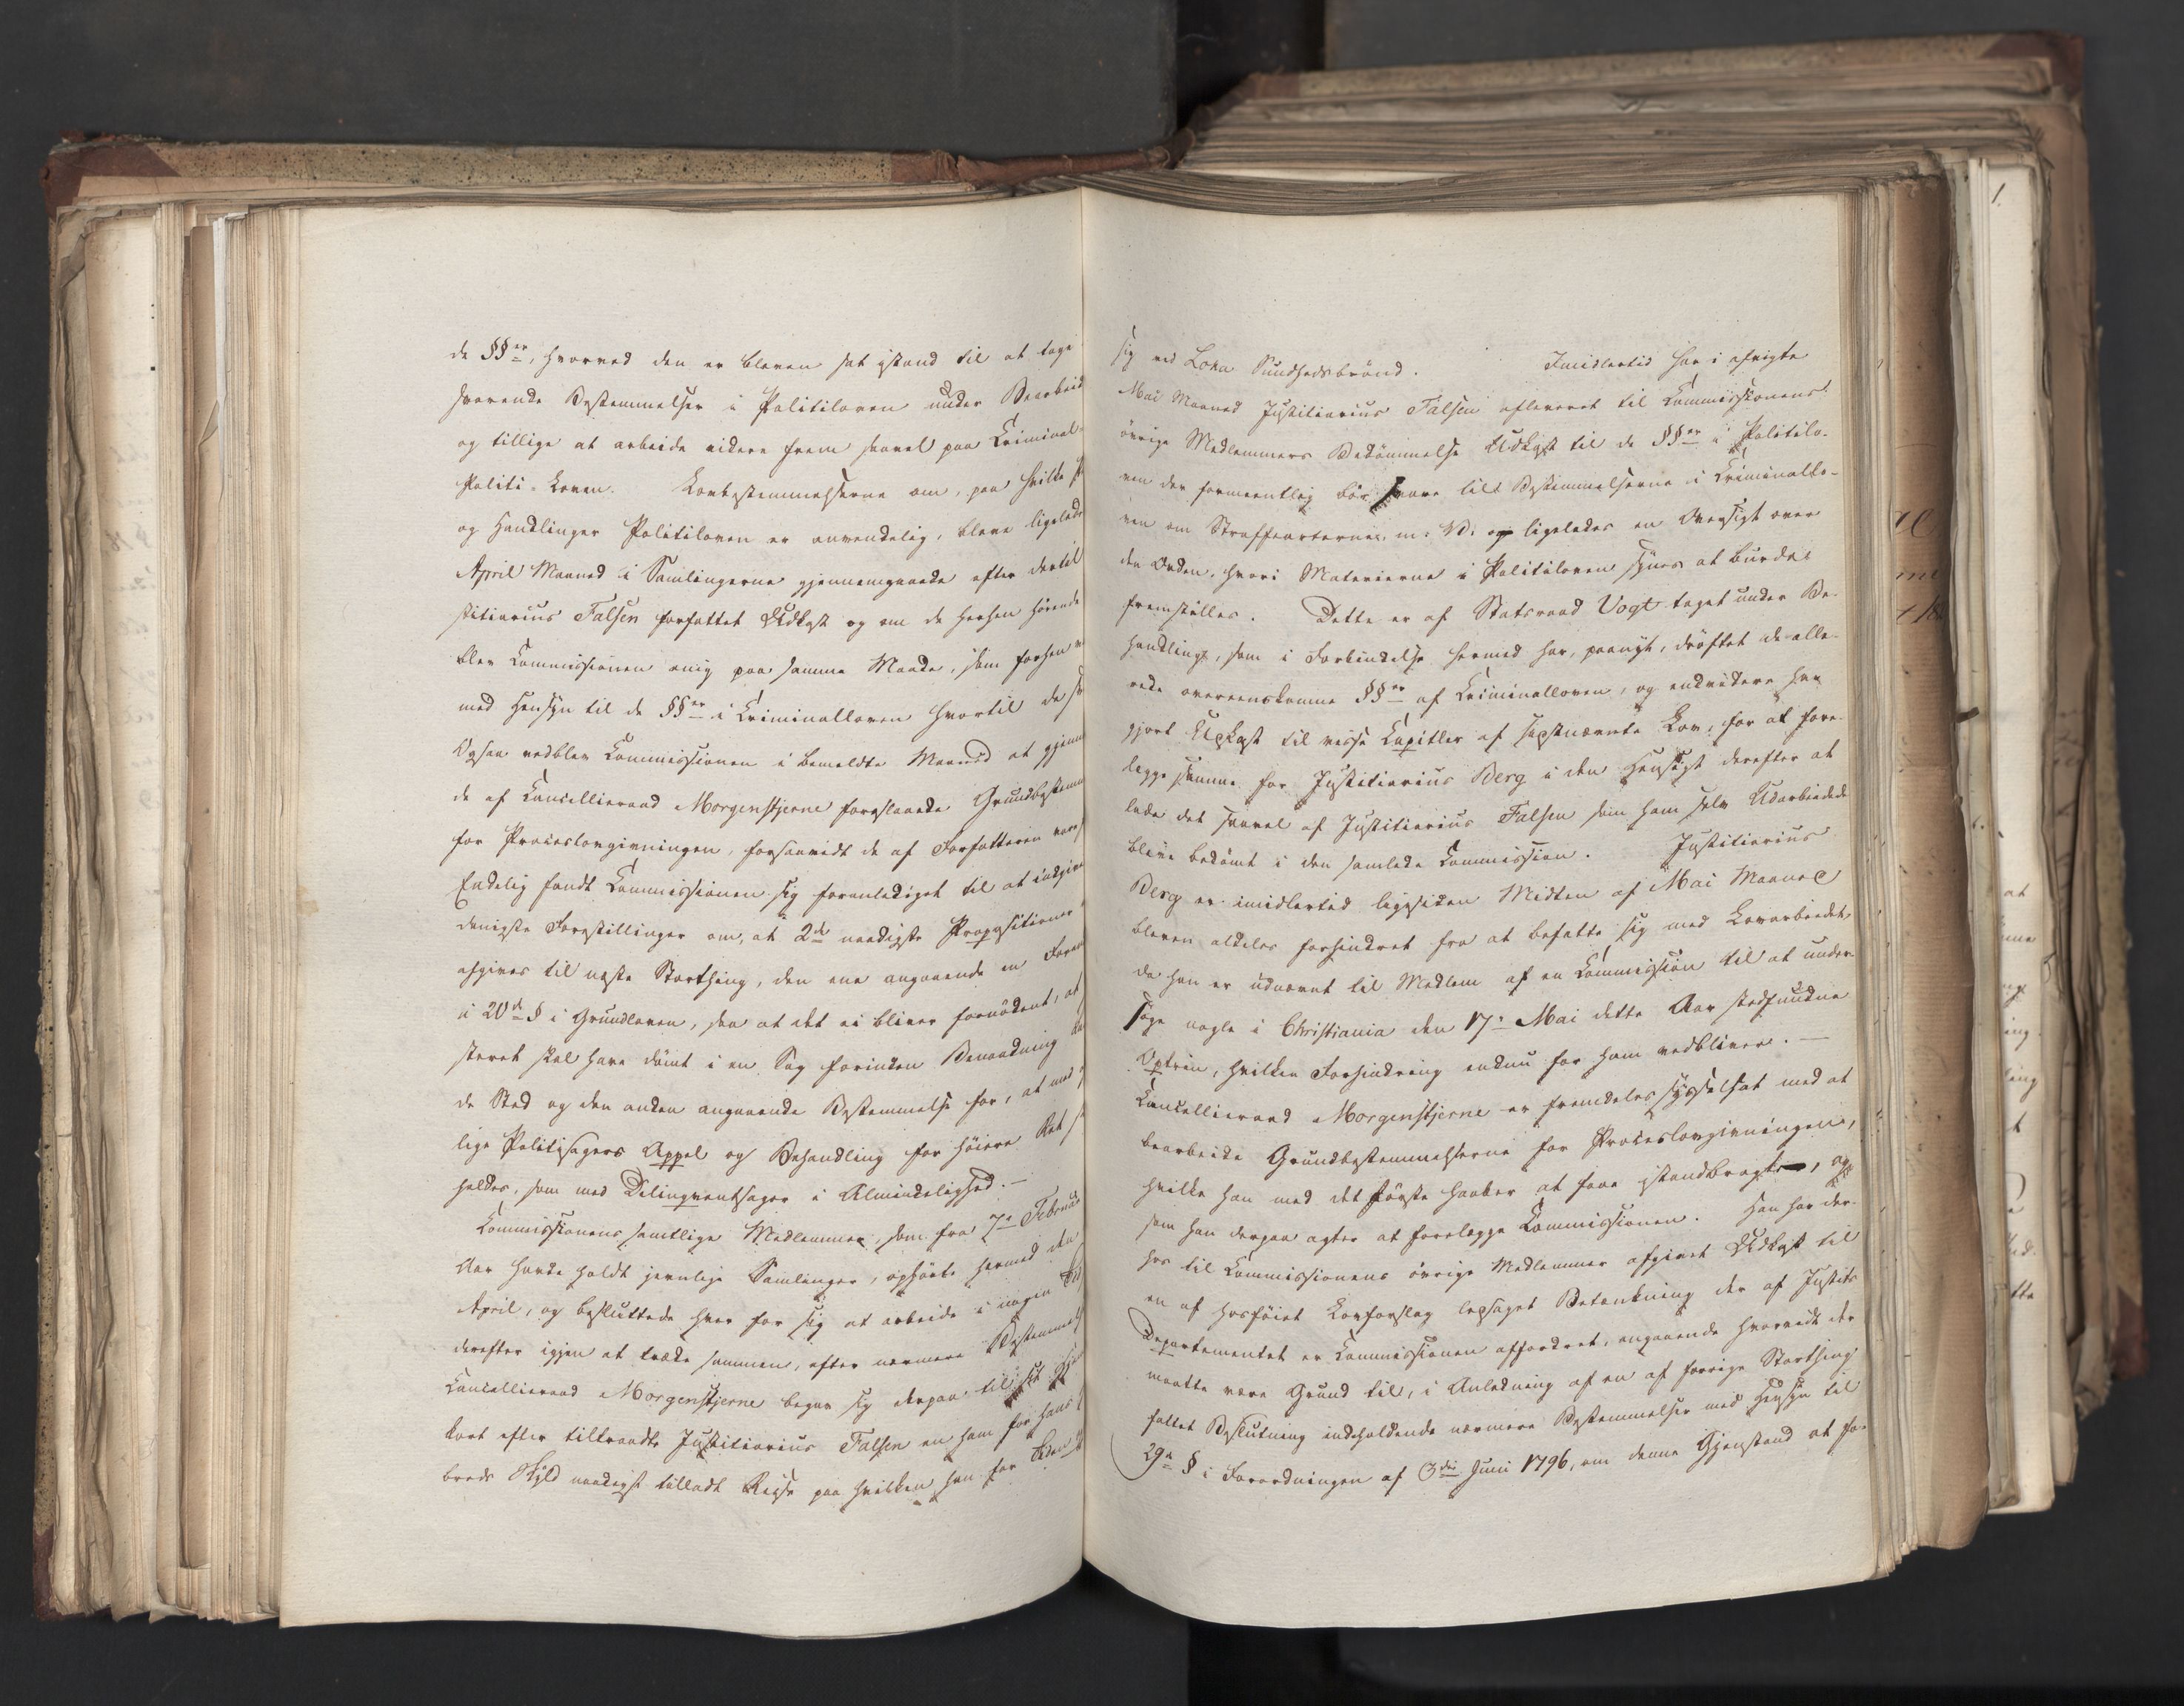 de §§er, hvorved den er bleven sat istand til at tage
svarende Bestemmelser i Politiloven under Bearbeid
og tillige at arbeide videre frem saavel paa Criminal-
Politi-Loven. Lovbestemmelserne om, paa hvilke
og Handlinger Politiloven er anvendelig, bleve ligelede
April Maaned i Samlingerne gjennemgaaede efter dertil
stitiarius Falsen forfattet Udkast og om de herhen hørende
blev Commissionen enig paa samme Maade, som forhen
med Hensyn til de §§er i Criminalloven hvortil de
Ogsaa vedblev Commissionen i bemeldte Maaned at gjenn
de af Cancellieraad Morgenstjerne foreslaaede Grundbestemm
for Proceslovgivningen, forsaavidt de af Forfatteren vare
Endelig fandt Commissionen sig foranlediget til at indgive
danigste Forestillinger om, at 2de naadigste Propositioner
afgives til næste Storthing, den ene angaaende en Foran
i 20de § i Grundloven, saa at det ei bliver fornødent, at
steret skal have dømt i en Sag forinden Benaadning
de Sted og den anden angaaende Bestemmelse for, at med
lige Politisagers Appel og Behandling for høiere Ret
holdes, som med Delinqventsager i Almindelighed. —
Commissionens samtlige Medlemmer, som fra 7de Februar
Aar havde holdt jevnlige Samlinger, ophørte hermed den
April, og besluttede hver for sig at arbeide i nogen Tid
derefter igjen at træde sammen, efter nærmere Bestemmels
Cancellieraad Morgenstjerne begav sig derpaa til sit
kort efter tiltraadte Justitiarius Falsen en ham for hans
breds Skyld naadigst tilladt Reise paa hvilken han for
sig ved Loka Sundhedsbrønd. Imidlertid har i afvigte
Mai Maaned Justitiarius Falsen afleveret til Commissionens
øvrige Medlemmers Bedømmelse Udkast til de §§er i Politilo-
ven der formeentlig bør svare til Bestemmelserne i Criminallo-
ven om Straffearterne m: V: og ligeledes en Oversigt over
den Orden, hvori Materierne i Politiloven synes at burde
fremstilles. Dette er af Statsraad Vogt taget under Be-
handling, som i Forbindelse hermed har, paanyt, drøftet de alle-
rede overeenskomne §§er af Criminalloven, og endvidere har
gjort Udkast til visse Capitler af sidstnævnte Lov, for at fore-
lægge samme for Justitiarius Berg i den Hensigt derefter at
lade det saavel af Justitiarius Falsen som ham selv Udarbeidede
blive bedømt i den samlede Commission. Justitiarius
Berg er imidlertid ligesiden Midten af Mai Maaned
bleven aldeles forhindret fra at befatte sig med Lovarbeidet,
da han er udnævnt til Medlem af en Commission til at under-
søge nogle i Christiania den 17de Mai dette Aar stedfundne
Optrin, hvilken Forhindring endnu for ham vedbliver. —
Cancellieraad Morgenstjerne er fremdeles sysselsat med at
bearbeide Grundbestemmelserne for Proceslovgivningen,
hvilke han med det første haaber at faae istandbragte, og
som han derpaa agter at forelægge Commissionen. Han har der-
hos til Commissionens øvrige Medlemmer afgivet Udkast til
en af hosføiet Lovforslag ledsaget Betænkning der af Justits
Departementet er Commissionen affordret, angaaende hvorvidt der
maatte være Grund til, i Anledning af en af forrige Storthing
fattet Beslutning indeholdende nærmere Bestemmelser med Hensyn til
29de § i Forordningen af 3die Juni 1796, om denne Gjenstand at fo-
1.